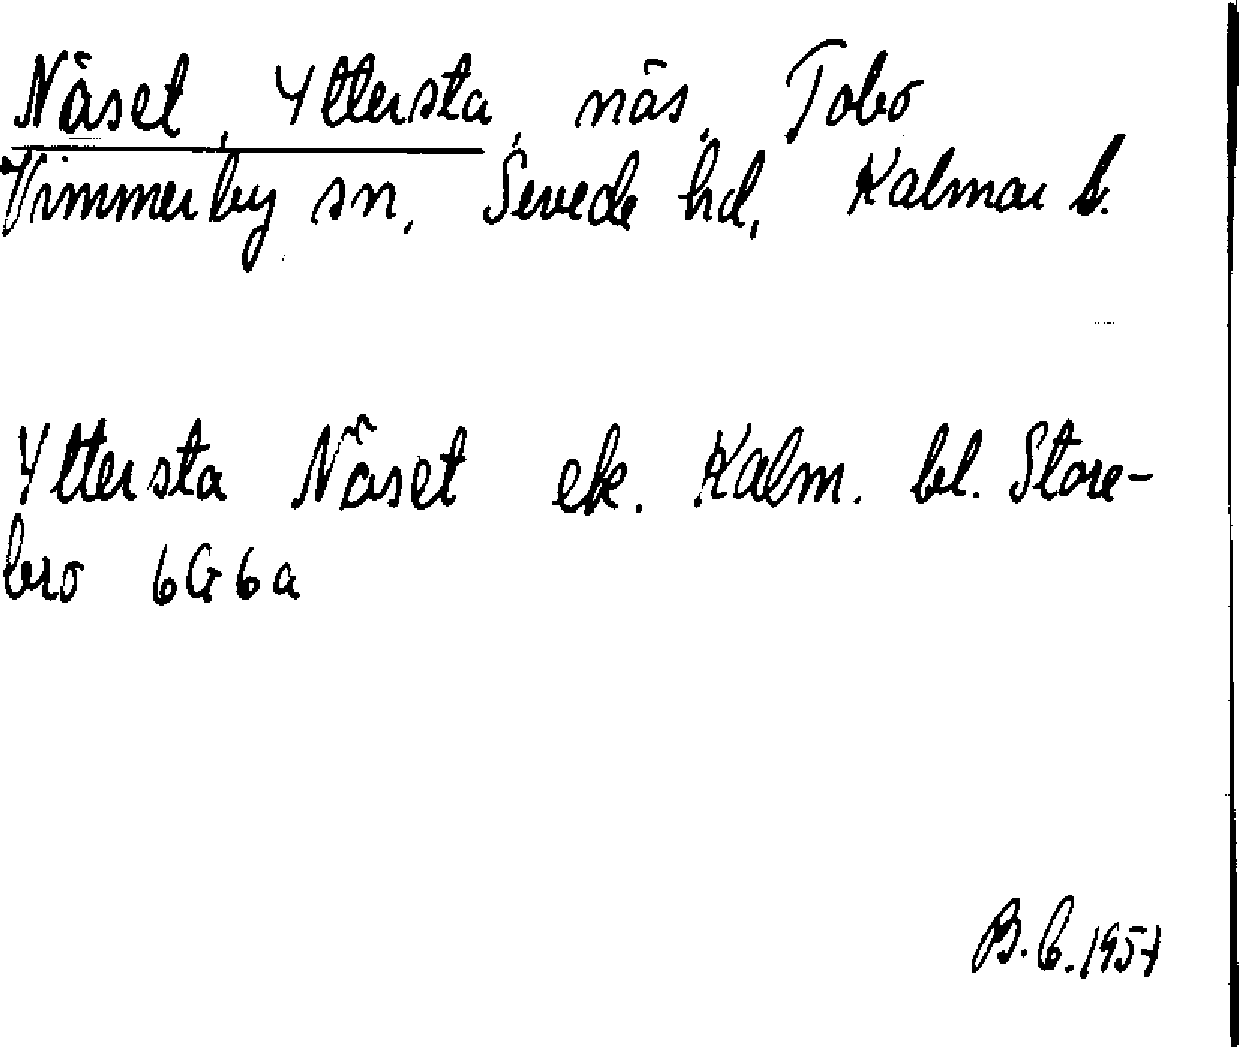 Näset, Yttersta, näs, Tobo
Vimmerby sn, Sevede hd, Kalmar l.
Yttersta Näset ek. Kalm. bl. Store-
bro 6G6a
1957